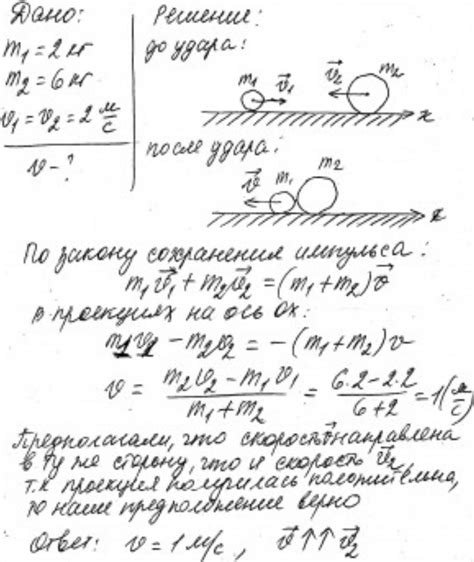 Дано:
m₁ = 2 кг
m₂ = 6 кг
v₁ = v₂ = 2 м/с
v – ?
Решение:
до удара:
m₁ v⃗₁ v⃗₂ m₂
x
после удара:
v⃗ m₁ m₂
x
По закону сохранения импульса:
m₁v⃗₁ + m₂v⃗₂ = (m₁ + m₂)v⃗
в проекциях на ось ox:
m₁v₁ – m₂v₂ = – (m₁ + m₂) v
v = (m₂v₂ – m₁v₁)/(m₁ + m₂) = (6·2 – 2·2)/(6 + 2) = 1 (м/с)
Предполагали, что скорость v⃗ направлена
в ту же сторону, что и скорость v⃗₂,
т.к проекция получилась положительна,
то наше предположение верно
Ответ: v = 1 м/с, v⃗ ↑↑ v⃗₂